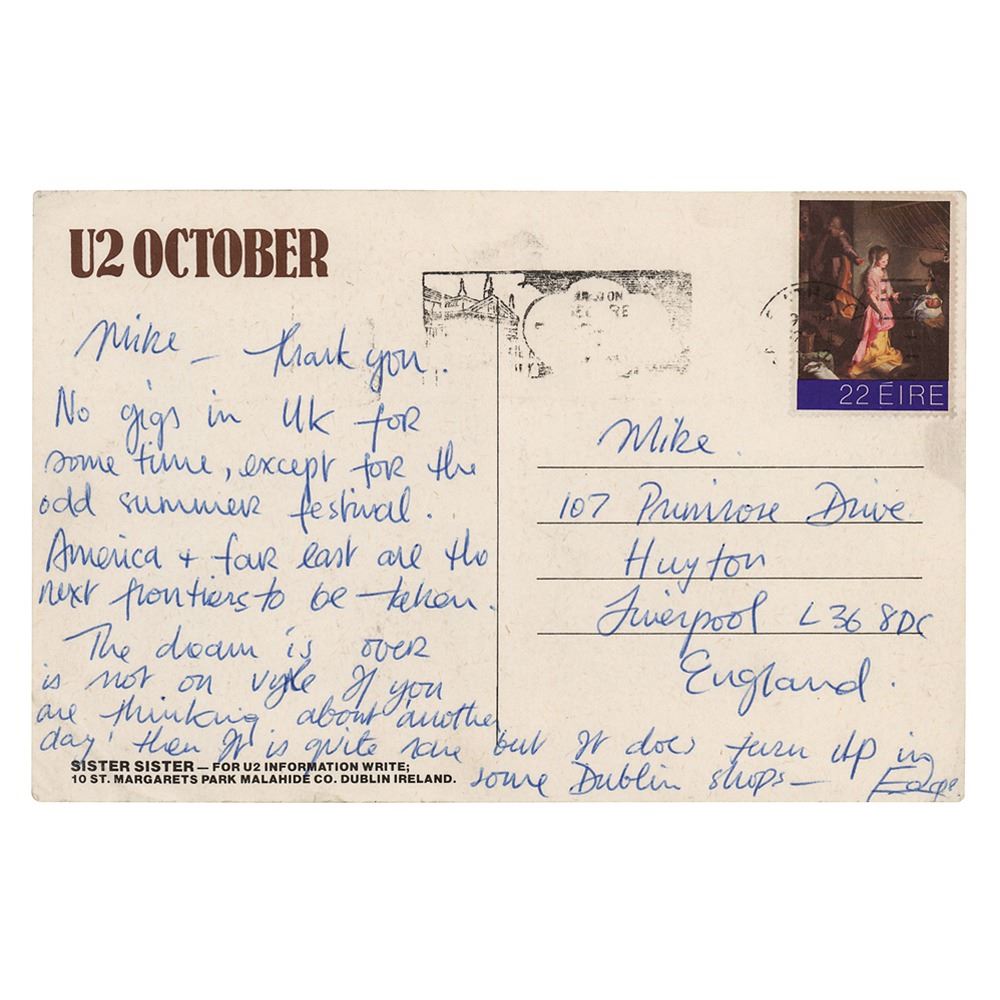 U2 OCTOBER
Mike – Thank you.
No gigs in UK for
some time, except for the
odd summer festival.
America + far east are the
next frontiers to be taken.
The dream is over
is not on vyle If you
are thinking about 'another
day' then It is quite rare but It does turn up in
some Dublin shops – Edge
SISTER SISTER — FOR U2 INFORMATION WRITE;
10 ST. MARGARETS PARK MALAHIDE CO. DUBLIN IRELAND.
22 ÉIRE
Mike.
107 Primrose Drive
Huyton
Liverpool L36 8DC
England.